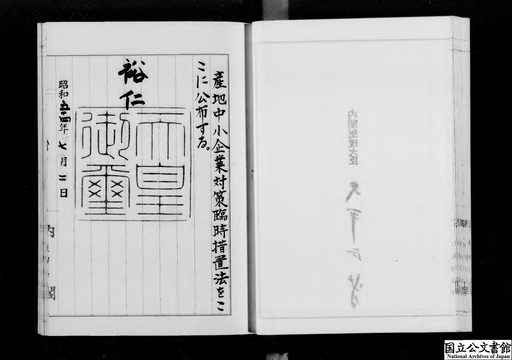 産地中小企業対策臨時措置法をこ
こに公布する。
裕仁
天皇
御璽
昭和五十四年七月二日
内閣
内閣総理大臣
国立公文書館
National Archives of Japan